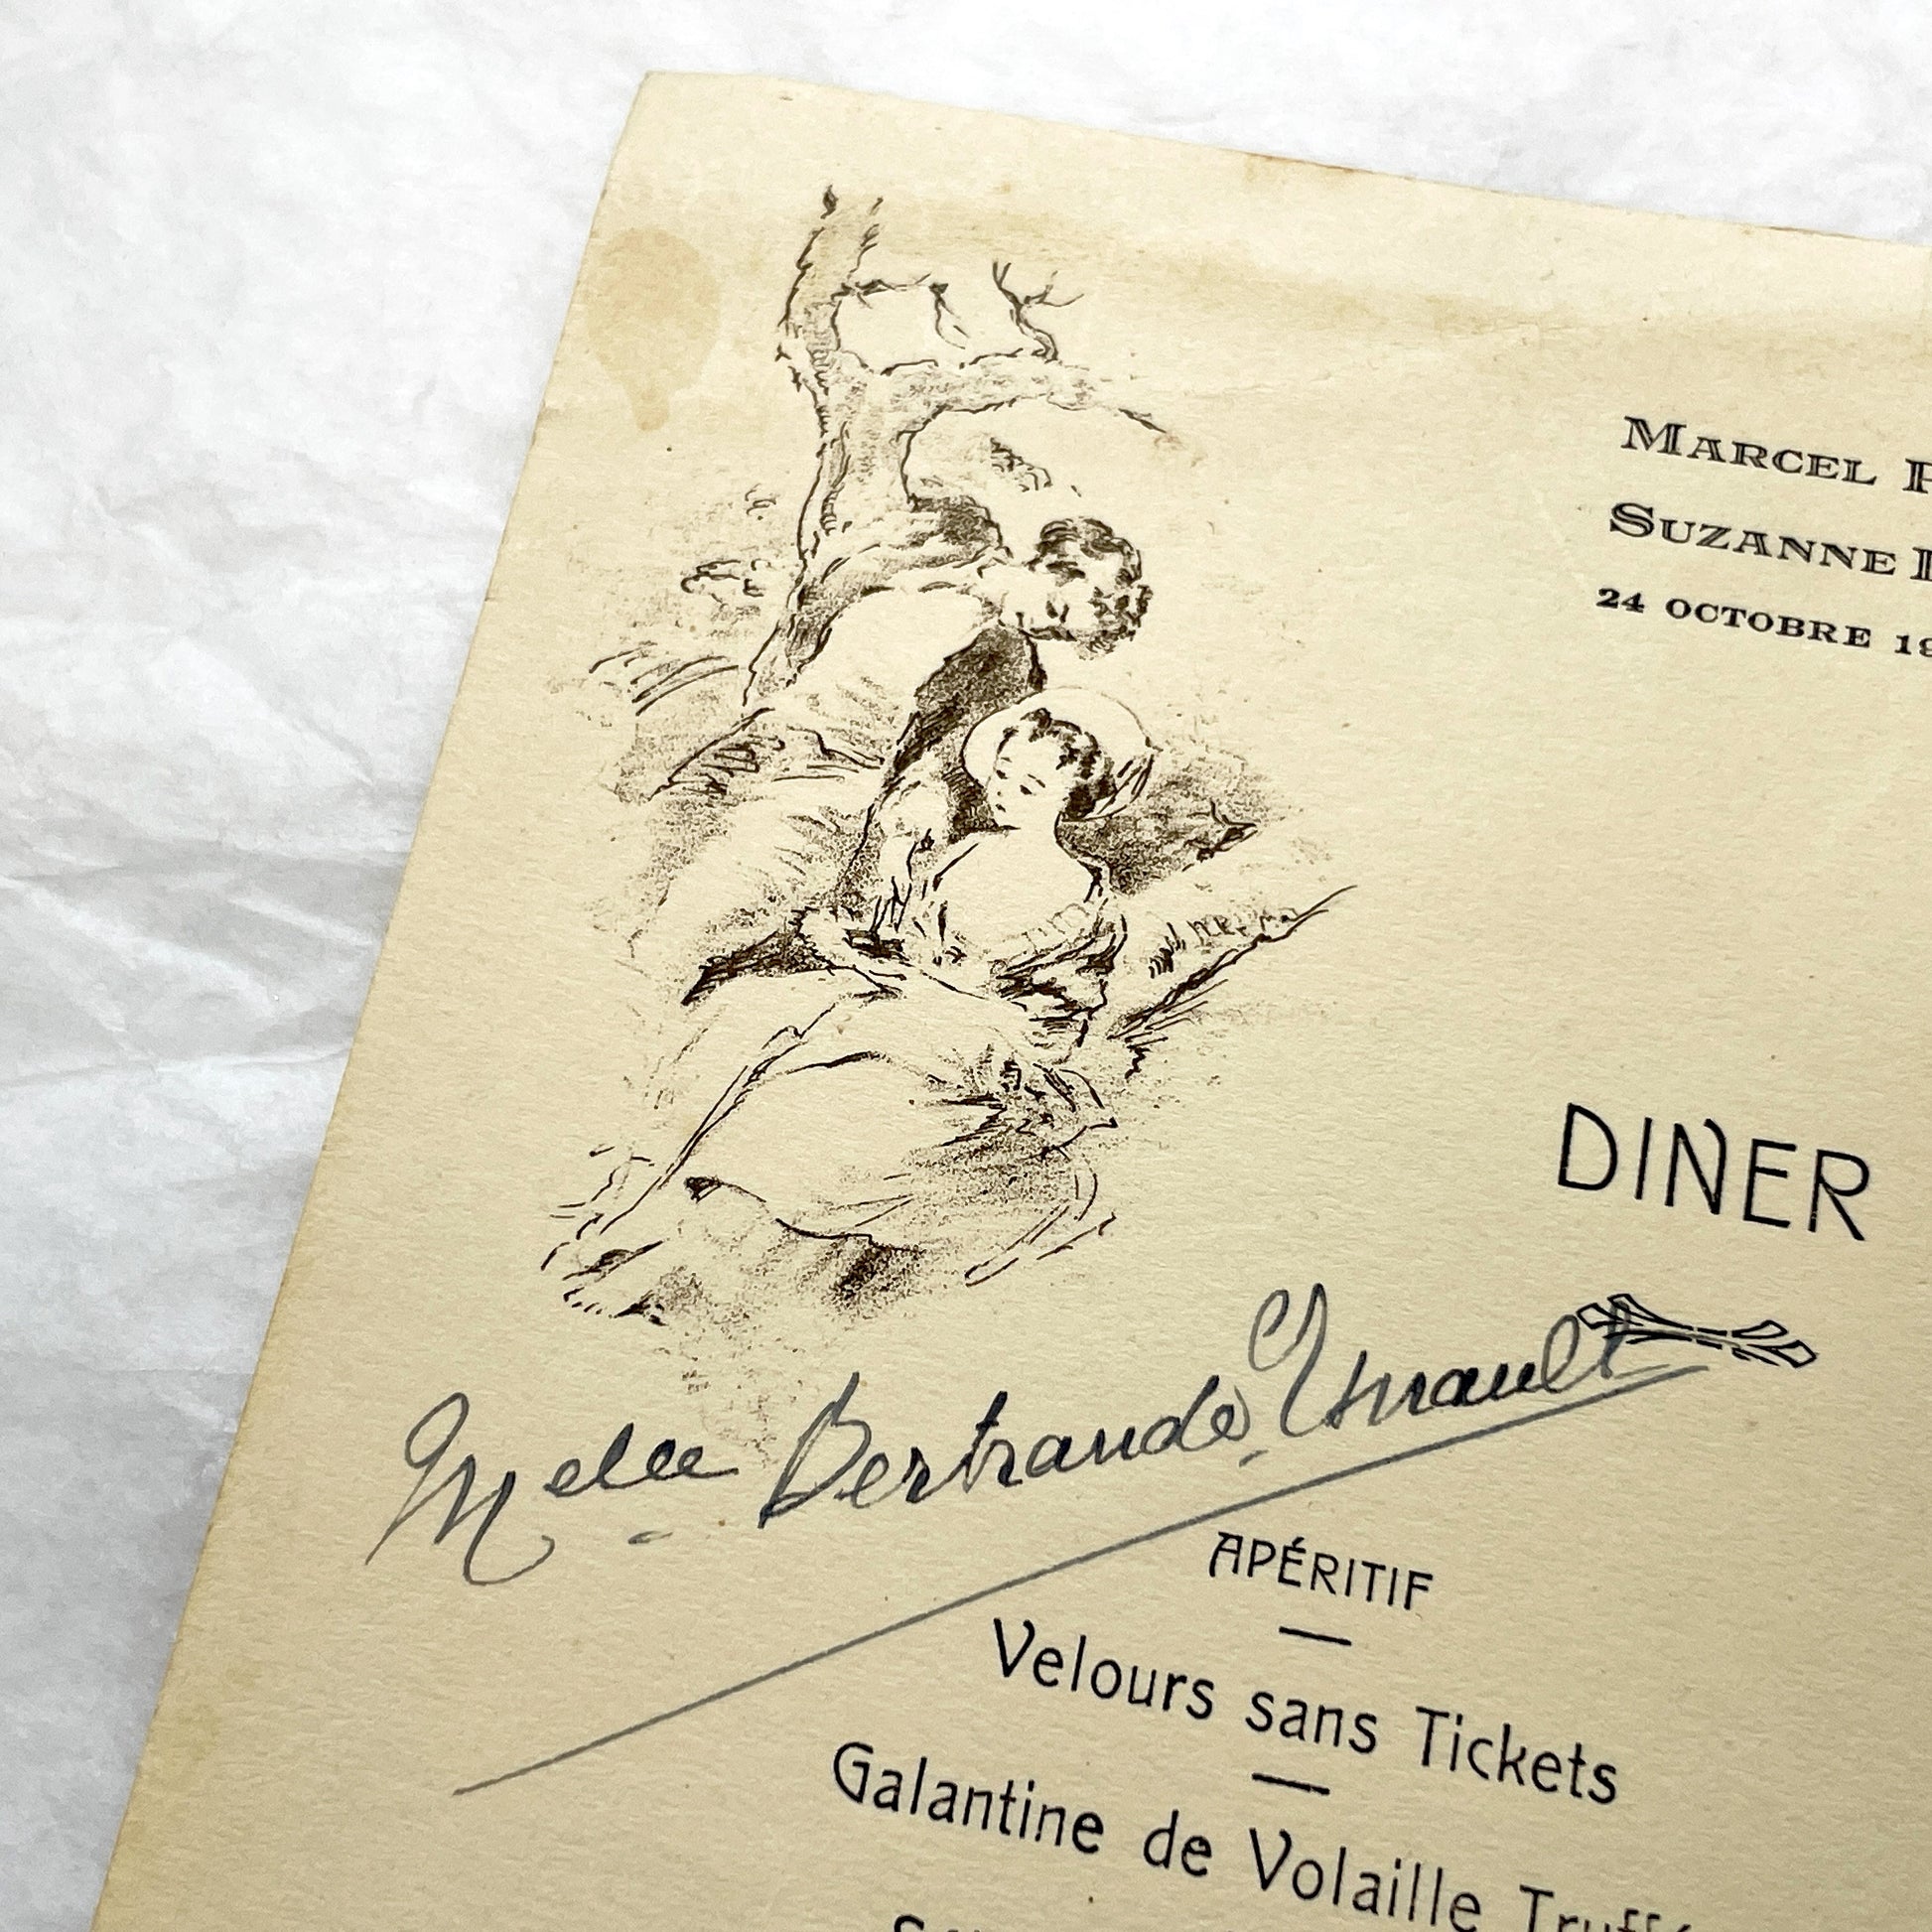 MARCEL
SUZANNE
24 OCTOBRE 19
DINER
Melle Bertrande
APÉRITIF
Velours sans Tickets
Galantine de Volaille Truffé